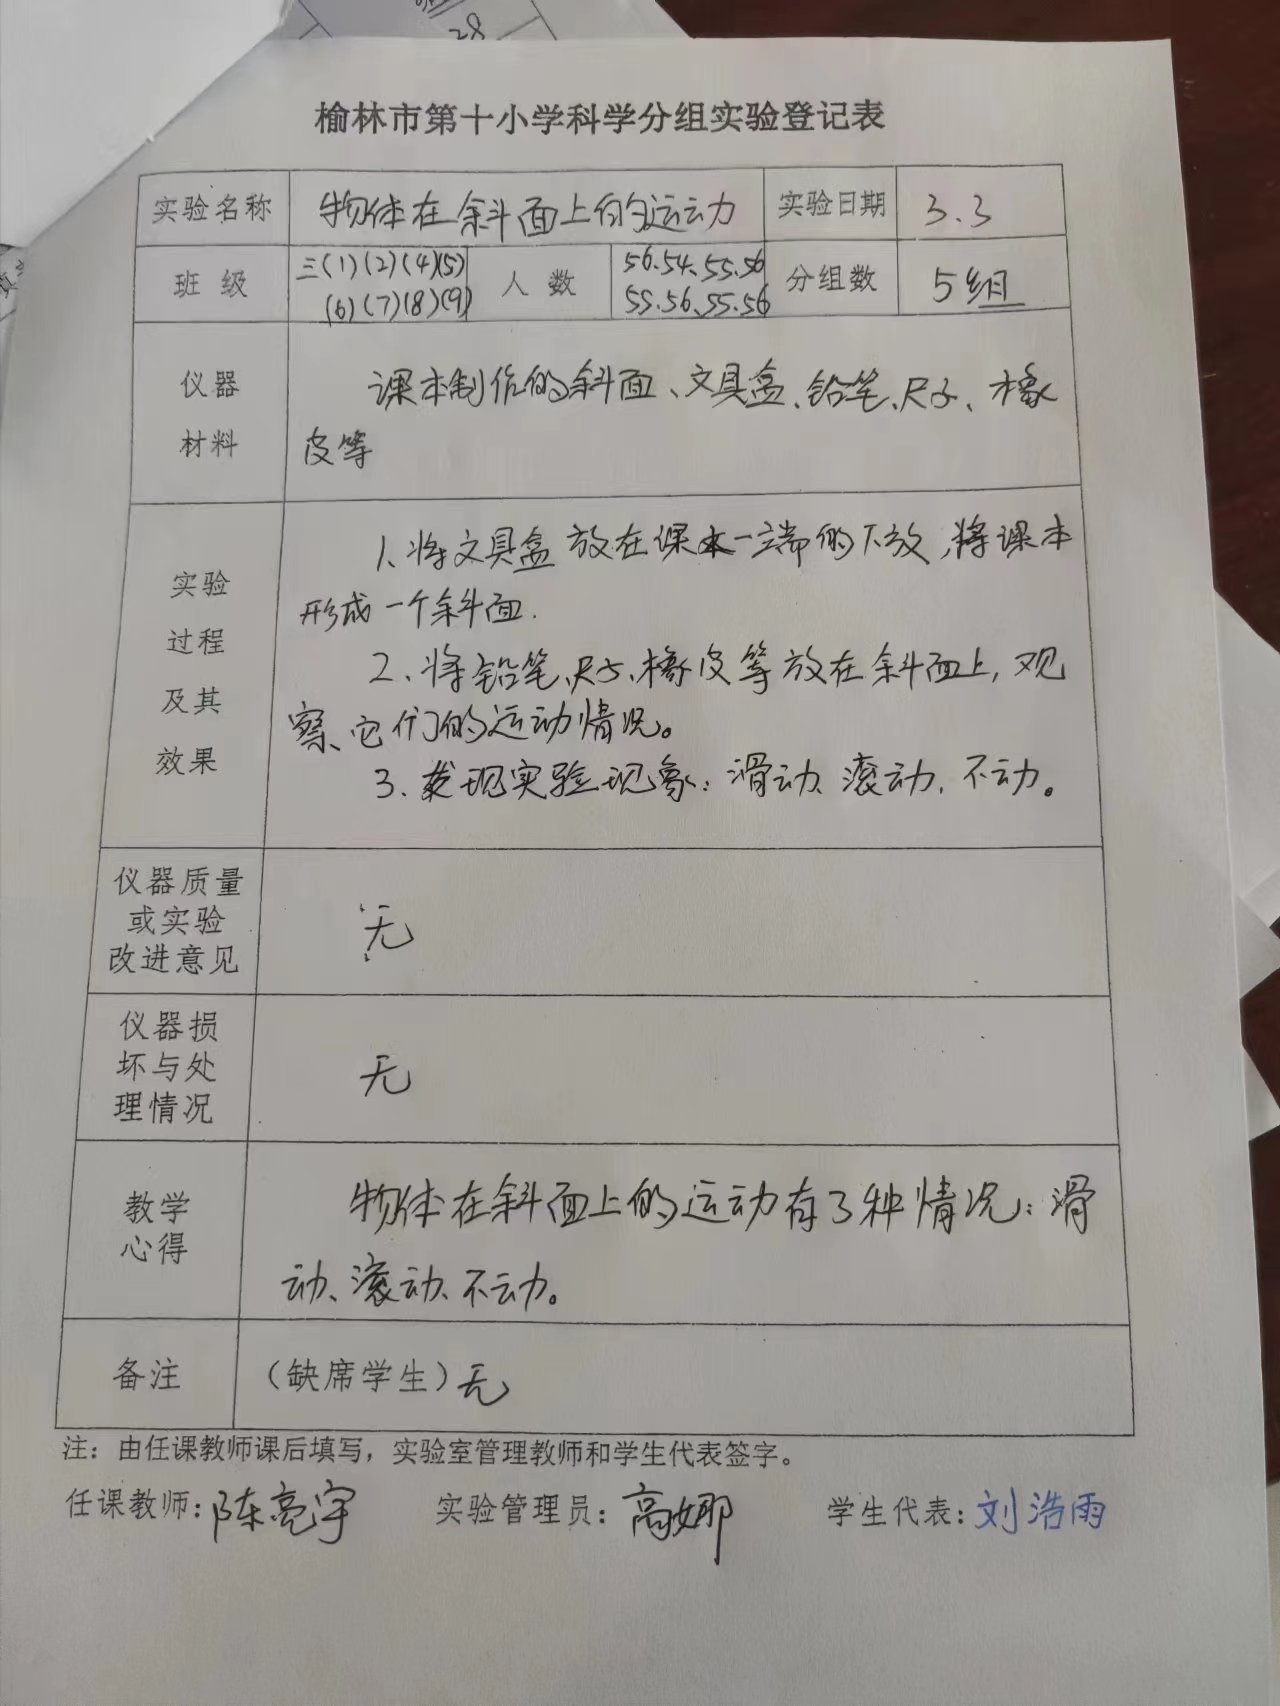 28
榆林市第十小学科学分组实验登记表
实验名称 物体在斜面上的运动 实验日期 3.3
班级 三(1)(2)(4)(5) 人数 56.54.55.56 分组数 5组
(6)(7)(8)(9) 55.56.55.56
仪器 课本制作的斜面、文具盒、铅笔、尺子、橡
材料 皮等
1、将文具盒放在课本一端的下放,将课本
实验 形成一个斜面.
过程 2、将铅笔、尺子、橡皮等放在斜面上,观
及其 察、它们的运动情况。
效果 3、发现实验现象:滑动、滚动、不动。
仪器质量
或实验 无
改进意见
仪器损
坏与处 无
理情况
教学 物体在斜面上的运动有3种情况:滑
心得 动、滚动、不动。
备注 (缺席学生)无
注:由任课教师课后填写,实验室管理教师和学生代表签字。
任课教师:陈亮宇 实验管理员:高娜 学生代表:刘浩雨